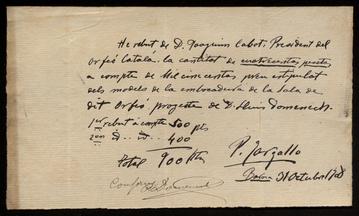 He rebut de D. Joaquim Cabot, President del
Orfeó Català la cantitat de cuatrecentas pessetas
a compte de Mil cincentas preu estipulat
dels models de la embocadura de la Sala de
dit Orfeó projecte de D. Lluis Domenech.
1er rebut a compte 500 pts
2on d.. d.. 400
total 900 Ptes
P. Gargallo
Barna 31 Octubre 1908
Conforme
L. Domenech